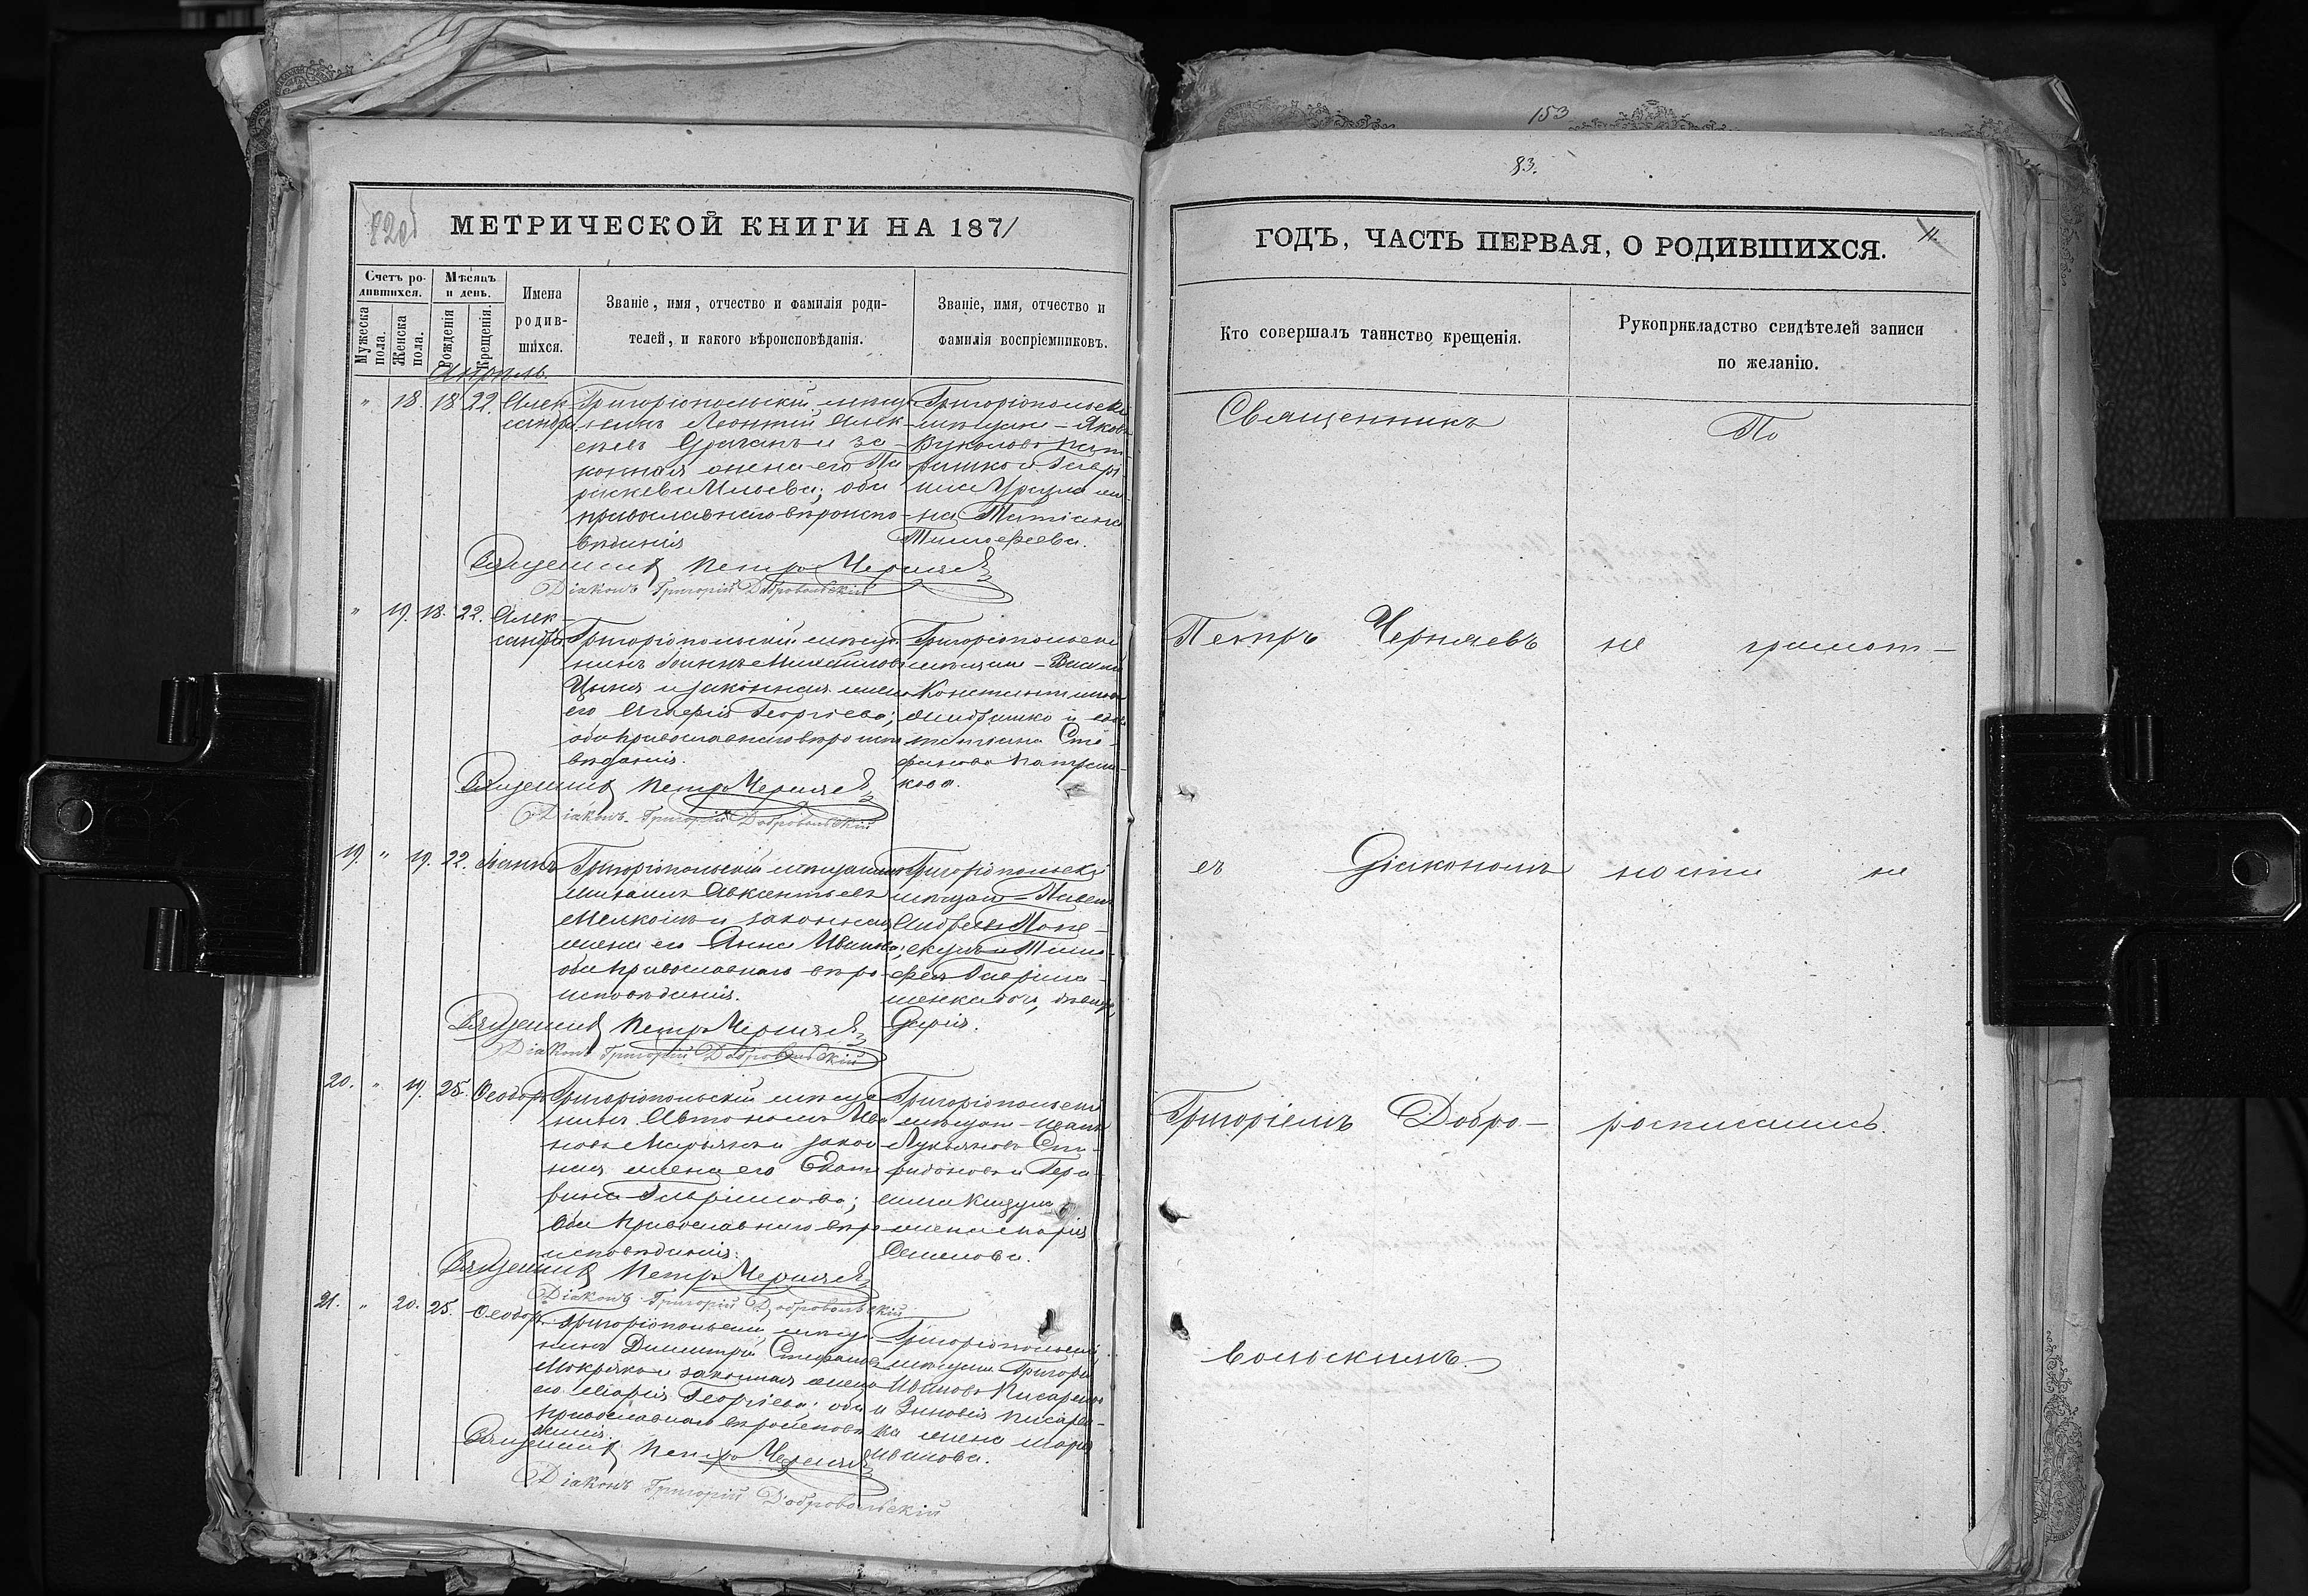 153
83.
82об
МЕТРИЧЕСКОЙ КНИГИ НА 1871
Счетъ ро-
дившихся.
Мужеска пола.
Женска пола.
Мѣсяцъ
и день.
Рожденія
Крещенія.
Имена
родив-
шихся.
Званіе, имя, отчество и фамилія роди-
телей, и какого вѣроисповѣданія.
Званіе, имя, отчество и
фамилія воспріемниковъ.
Апрѣль.
" 18. 18 22. Алек-
сандра
Григоріопольскій мѣща-
нинъ Леонтій Алек-
и за-
конная жена его Па-
раскева Ильева; оба
православнаго вѣроиспо-
вѣданія
Григоріопольскі
мѣщане - Яковъ
Татіана
Тимофеева.
Священникъ Петръ Черняевъ
Діаконъ Григорій Добровольскій
" 19. 18. 22. Алек-
сандра
Григоріопольскій мѣща-
нинъ Іоаннъ Михайловъ
и законная жена
его Георгіева;
оба православнаго вѣроиспо-
вѣданія.
Григоріопольскі
мѣщане - Васил
Константинов
Сте-
фанова
кова.
Священникъ Петръ Черняевъ
Діаконъ Григорій Добровольскій
19. " 19. 22. Іоаннъ
Григоріопольскій мѣщанинъ
Михаилъ Авксентьевъ
и законная
жена его Анна Иванова;
оба православнаго вѣро-
исповѣданія.
Григоріопольскі
мѣщане - Павелъ
Андреевъ Попе-
Тимо-
фея
Дарія.
Священникъ Петръ Черняевъ
Діаконъ Григорій Добровольскій
20. " 19. 25. Ѳеодоръ
Григоріопольскій мѣща-
нинъ Автономъ Ива-
новъ и закон
ная жена его Екате
рина Гавріилова;
оба православнаго вѣро
исповѣданія.
Григоріопольскі
мѣщане - Иванъ
Лукьяновъ Спи-
ридоновъ и Гера-
сима
жена Марія
Семенова.
Священникъ Петръ Черняевъ
Діаконъ Григорій Добровольскій
21. " 20. 25. Ѳеодоръ
Григоріопольскій мѣща-
нинъ Димитрій Стефановъ
Мокрякъ и законная жена
его Марія Георгіева; оба
православнаго вѣроисповѣ
данія.
Григоріопольскі
мѣщане Григорі
Ивановъ Писаренко
и Зиновія Писарен-
ка жена Марія
Иванова.
Священникъ Петръ Черняевъ
Діаконъ Григорій Добровольскій
ГОДЪ, ЧАСТЬ ПЕРВАЯ, О РОДИВШИХСЯ.
11.
Кто совершалъ таинство крещенія.
Рукоприкладство свидѣтелей записи
по желанію.
Священникъ
По
Петръ Черняевъ
не грамот-
съ Діакономъ
ности не
Григоріемъ Добро-
росписались.
вольскимъ.